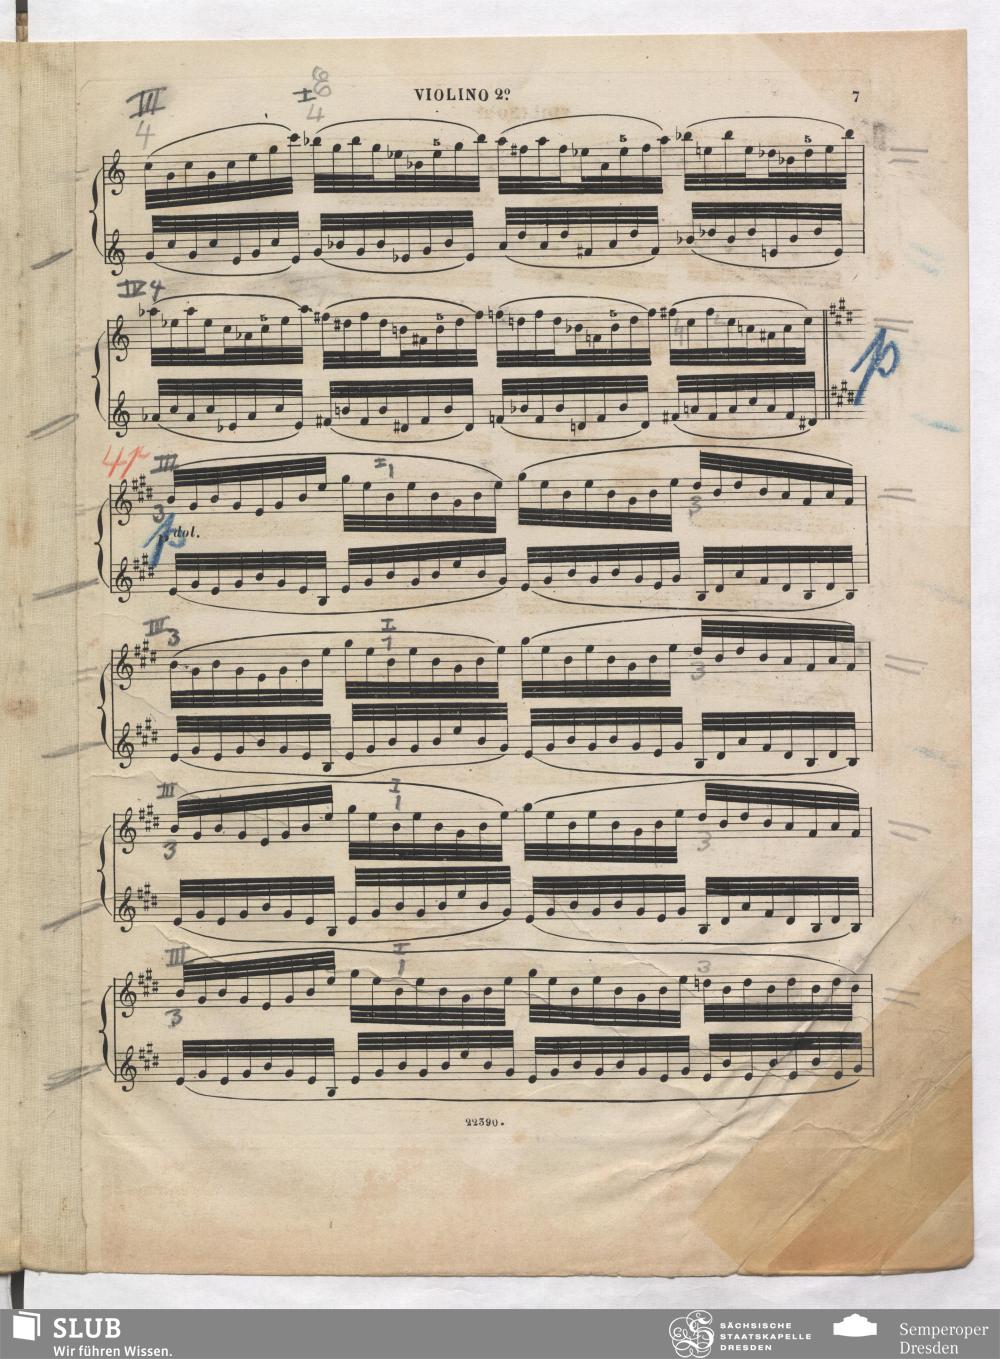 VIOLINO 2º.
7
III
I
4
4
5
5
5
IV 4
5
5
5
4
p
4
III
I 1
3
3
p dol.
III 3
I
1
3
III
I
1
3
3
III
I
1
3
3
22390.
SLUB
Wir führen Wissen.
SÄCHSISCHE
STAATSKAPELLE
DRESDEN
Semperoper
Dresden